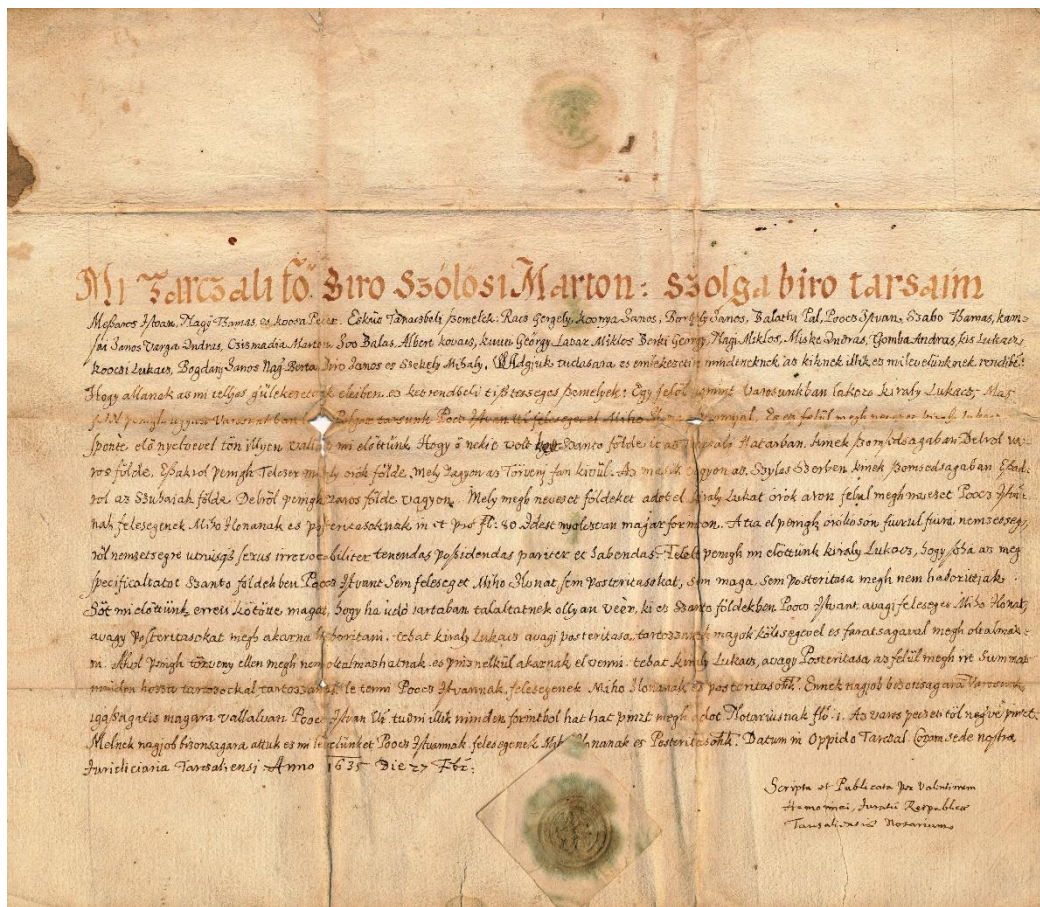 Mi Tarczali fö Biro Szólosi Marton: Szolga biro tarsaim
Meßaros Istvan, Nagÿ Thamas, es koosa Peter. Esküt Tanaczbeli ßemelek: Racs Gergely, Koonya Janos, Borbely Janos, Balatha Pal, Poocs Istvan, Szabo Thamas,
Janos Varga Andras, Csizmadia Marton, Soo Balas, Albert kovacs, György, Lazar Miklos Benki György, Nagi Miklos, Miske Andras, Gomba Andras kis Lukacz,
koocsi Lukacz, Bogdany Janos Nagy Biro Janos es Szekely Mihaly. Adgiuk tudasara es emlekezetire mindeneknek, az kiknek illik es mi levelünknek rendibe:
Hogy allanak az mi telljes gülekezetünk eleiben, es ket rendbeli tißtesseges ßemelyek: Egy felöl ugymint Varosunkban lakozo kiraly Lukacz, Mas
felöl penigh ugyan Varosunkban tarsunk Poocs Istvan feleseget Miho
sponte elö nyelvevel tön illyen mi elöttünk. Hogy ö nekie volt Szanto földe is az Hatarban. Amek ßomßedsagaban Delrol va-
ros földe, Eßakrol penigh Telczer örök földe, Mely vagyon az Törveny fan kivül. Az masik vagyon az Szylas Szerben kinek ßomsedsagaban Eßad-
rol az Szubaiak földe Delröl penigh varos földe vagyon. Mely megh nevezet földeket adot el kiraly Lukacz örök aron felul megh nevezet Poocs Istvan-
nak felesegenek Miho Ilonanak es posteritasoknak in et pro fl: 80 Idest nyolczvan magiar forinton. Atta el penigh örökösön fiurul fiura, nemzetseg-
röl nemzetsegre utriusqs sexus irrevocabiliter tenendas poßidendas pariter et habendas penigh mi elöttünk kiraly Lukacz, hogy soha az meg
specificaltatot Szanto földekben Poocs Istvant Sem feleseget Miho Ilonat, sem Posteritasokat, sem maga, sem posteritasa megh nem haboritjak.
Söt mi elöttünk erreis kötötte magat, hogy ha üdö iartaban talaltatnek ollyan veèr, ki es Szanto földekben, Poocs Istvant, avagi feleseget Miho Ilonat,
avagy posteritasokat megh akarna haboritani, tehat kiraly Lukacz avagi posteritasa, tartozzanak magok költsegevel es faratsagaval megh oltalmaz-
ni. Ahol penigh törveny ellen megh nem oltalmazhatnak es pinz nelkül akarnak el venni, tehat kiraly Lukacz, avagy Posteritasa az felül megh irt Summat
minden hozza tartozockal tartozzanak le tenni Poocs Istvannak, felesegenek Miho Ilonanak es posteritasok. Ennek nagjob bizonsagara Varosunk
igaßagatis magara vallalvan Poocs Istvan tudni illik minden forintbol hat hat pinzt megh adot Notariusnak flo. 1. Az varos peczeti töl negyve pinzt.
Melnek nagjob bizonsagara attuk es mi levelünket Poocs Istvannak felesegenek Miho Ilonanak es Posteritasok. Datum in Oppido Tarczal Coram sede nostra
Iuridiciaria Tarczaliensi Anno 1635 Die 27 Fbr:
Scripta et Publicata per Valentinum
Iurati Reipublicae
Tarczaliensis Notarium